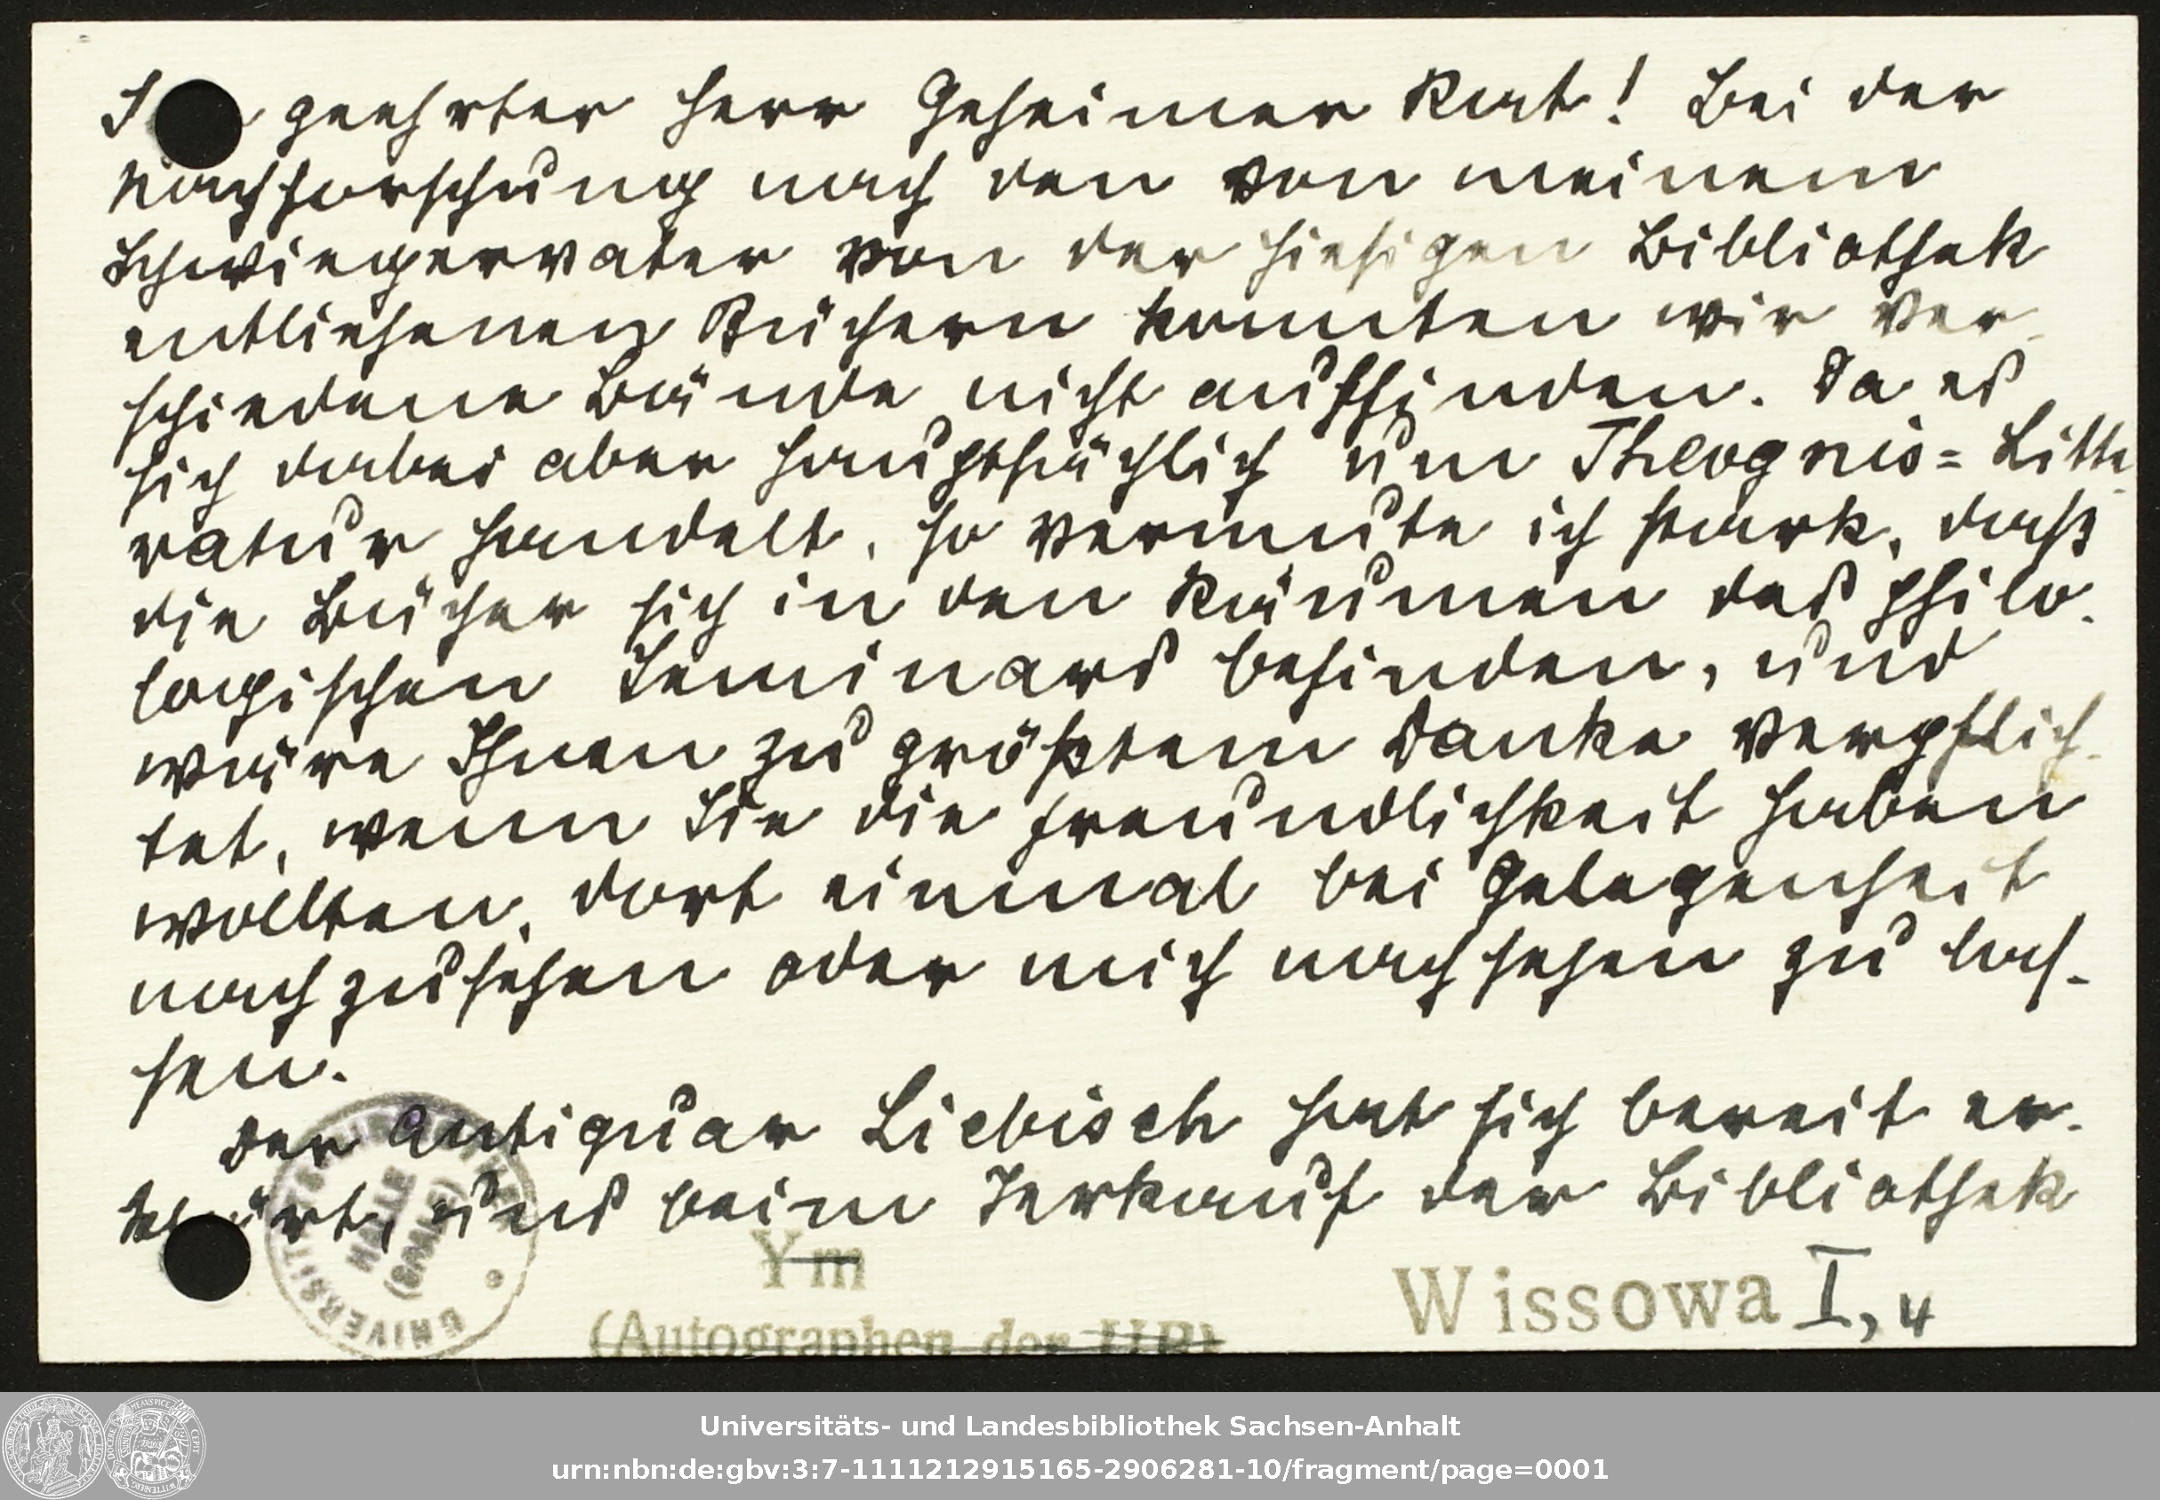 geehrter Herr Geheimer Rat! Bei der
Nachforschung nach den von meinem
Schwiegervater von der hiesigen Bibliothek
entliehenen Büchern konnten wir ver-
schiedene Bände nicht auffinden. Da es
sich dabei aber hauptsächlich um Theognis=Litte
ratur handelt, so vermute ich stark, daß
die Bücher sich in den Räumen des philo-
logischen Seminars befinden, und
wäre Ihnen zu größtem Danke verpflich-
tet, wenn Sie die Freundlichkeit haben
wollten, dort einmal bei Gelegenheit
nachzusehen oder mich nachsehen zu las-
sen.
Der Antiquar Liebisch hat sich bereit er-
klärt, uns beim Verkauf der Bibliothek
UNIVERSITÄTSBIBLIOTHEK
HALLE
(SAALE)
Ym
(Autographen der UB)
Wissowa I, 4
Universitäts- und Landesbibliothek Sachsen-Anhalt
urn:nbn:de:gbv:3:7-1111212915165-2906281-10/fragment/page=0001